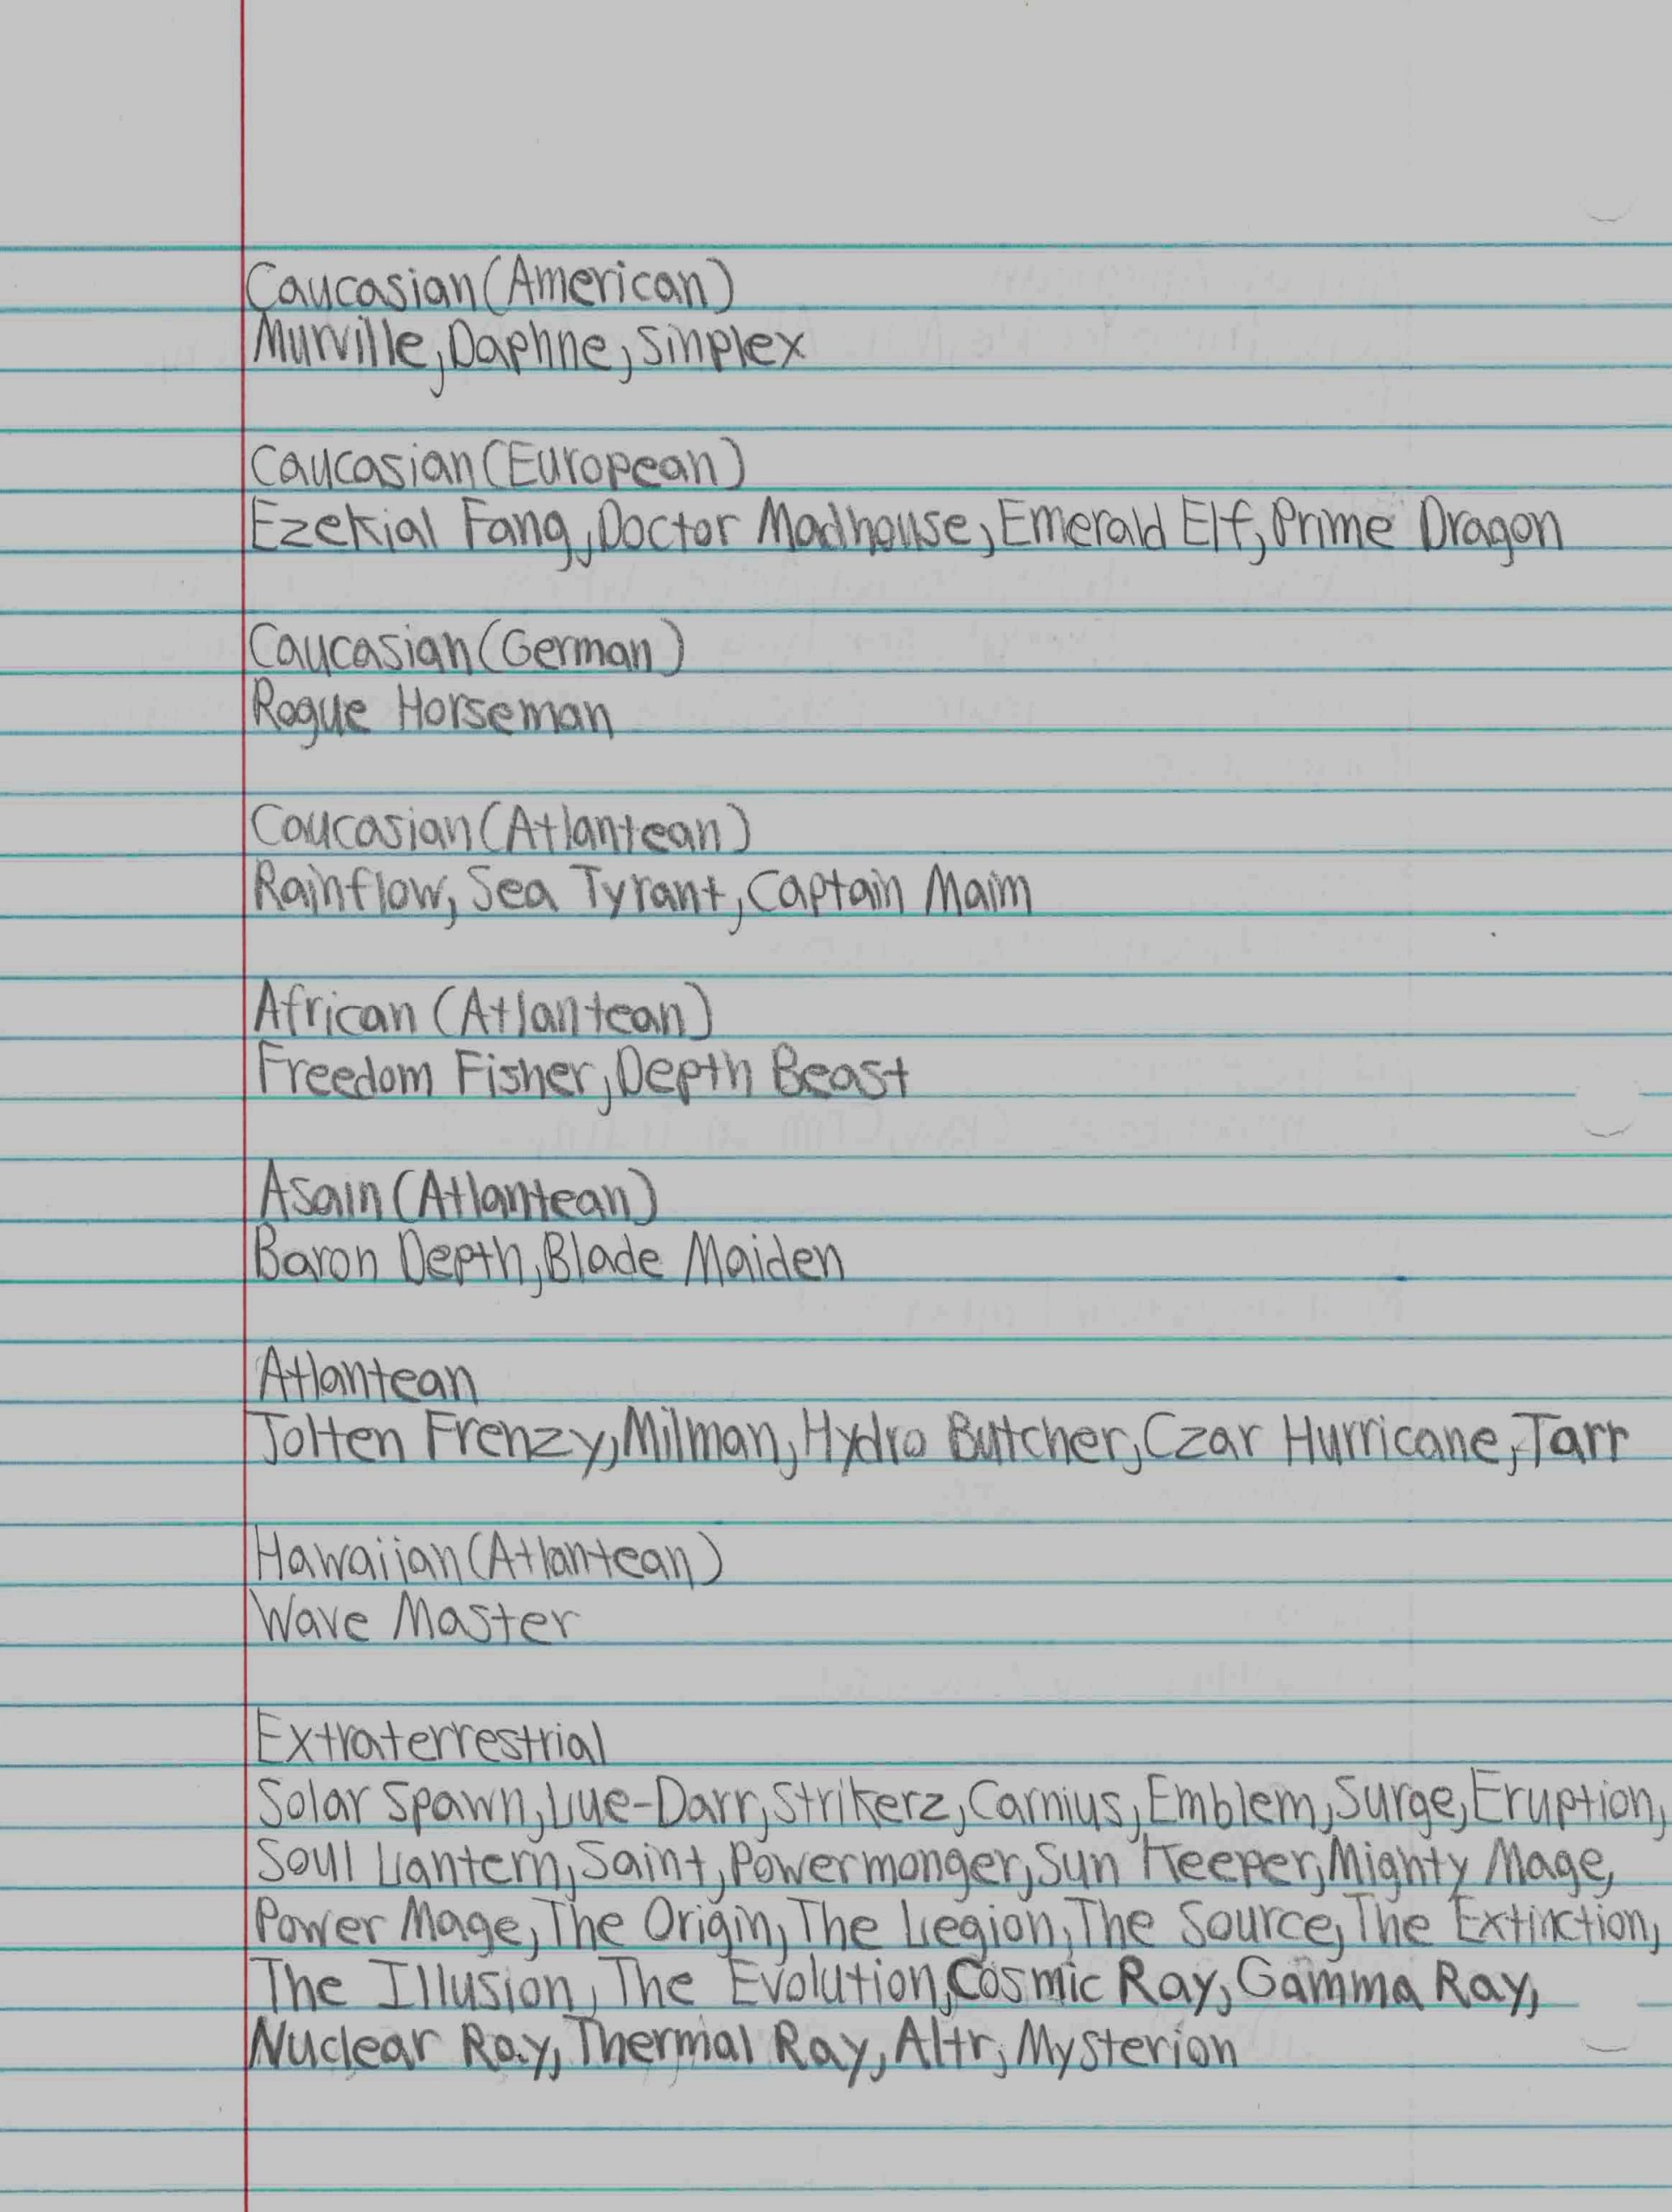 Caucasian (American)
Murville, Daphne, Sinplex
Caucasian (European)
Ezekial Fang, Doctor Madhouse, Emerald Elf, Prime Dragon
Caucasian (German)
Rogue Horseman
Caucasian (Atlantean)
Rainflow, Sea Tyrant, Captain Maim
African (Atlantean)
Freedom Fisher, Depth Beast
Asain (Atlantean)
Baron Depth, Blade Maiden
Atlantean
Jolten Frenzy, Milman, Hydro Butcher, Czar Hurricane, Tarr
Hawaiian (Atlantean)
Wave Master
Extraterrestrial
Solar Spawn, Lue-Darr, Strikerz, Carnius, Emblem, Surge, Eruption,
Soul Lantern, Saint, Powermonger, Sun Keeper, Mighty Mage,
Power Mage, The Origin, The Legion, The Source, The Extinction,
The Illusion, The Evolution, Cosmic Ray, Gamma Ray,
Nuclear Ray, Thermal Ray, Altr, Mysterion